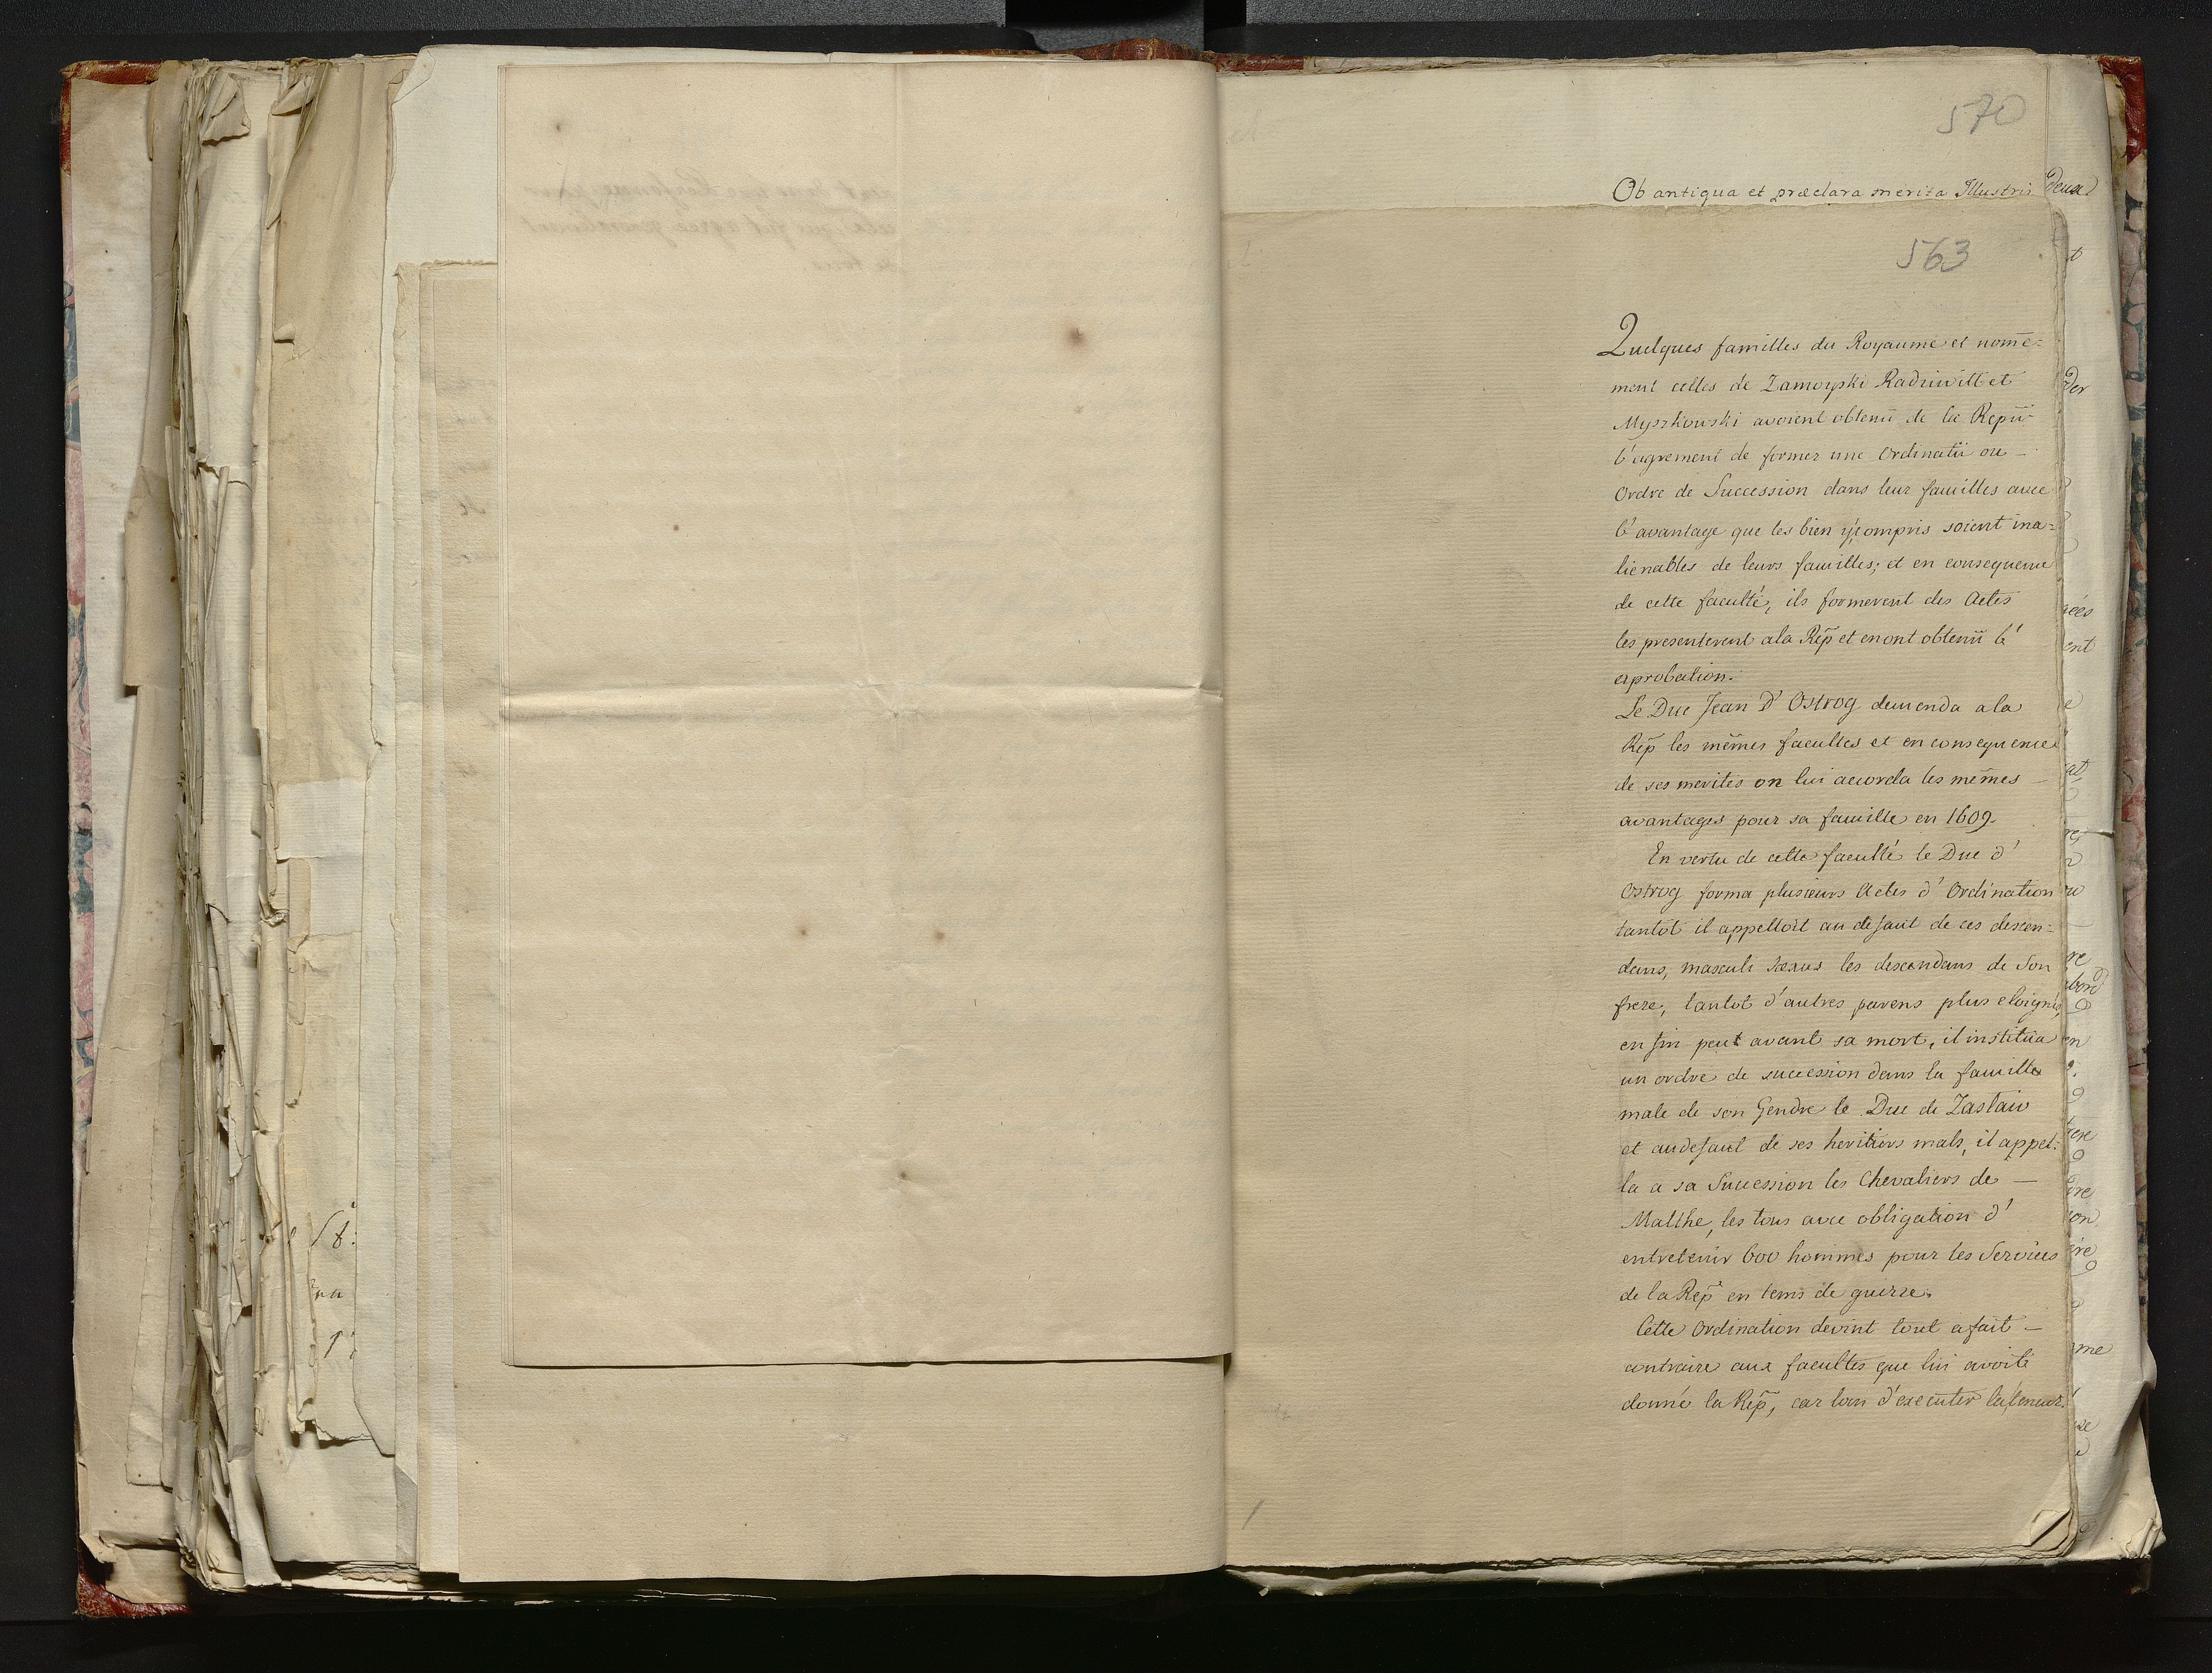 570
Ob antiqua et præclara merita Illustris
563
Quelques familles du Royaume et nom̄e=
ment celles de Zamoyski Radziwill et
Myszkowski avoient obtenü de la Repü
l'agrement de former une Ordinatii ou –
Ordre de Succession dans leur familles avec
l'avantage que les bien y compris soient ina=
lienables de leurs familles; et en consequence
de cette faculté, ils formerent des Actes
les presenterent a la Rep̃ et en ont obtenü l'
aprobation.
Le Duc Jean D'Ostrog demenda a la
Rep̃ les mêmes facultes et en consequence
de ses merites on lui acorda les mêmes –
avantages pour sa famille en 1609.
En vertu de cette faculté le Duc d'
Ostrog forma plusieurs Actes d'Ordination
tantot il appelloit au defaut de ces descen=
dans, masculi sexus les descendans de Son
frere; tantot d'autres parens plus eloignés,
en fin peut avant sa mort, il institua
un ordre de succession dans la famille
male de son Gendre le Duc de Zaslaw
et au defaut de ses heritiers mals, il appel=
la a sa Succession les Chevaliers de –
Malthe, les tous avec obligation d'
entretenir 600 hommes pour les Services
de la Rep̃ en tems de guerre.
Cette Ordination devint tout a fait –
contraire aux facultes que lui avoit
donné la Rep̃, car loin d'executer la teneur